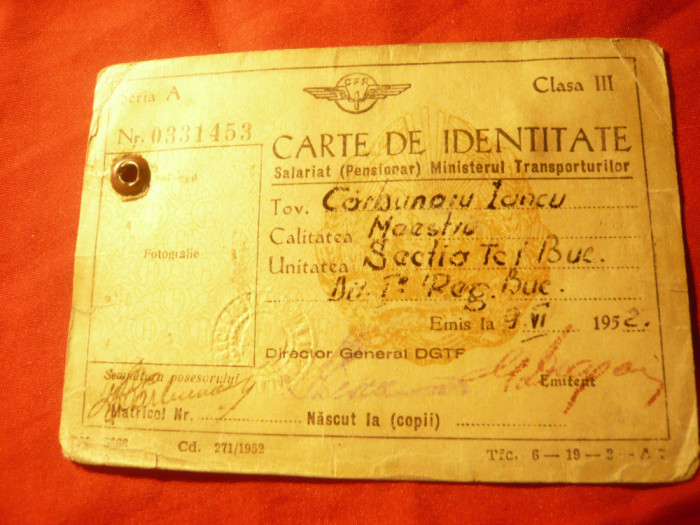 Seria A
CFR
Clasa III
Nr. 0331453
CARTE DE IDENTITATE
Salariat (Pensionar) Ministerul Transporturilor
Tov. Cărbunaru Iancu
Calitatea Maestru
Unitatea Secția T Buc.
Reg. Buc.
Fotografie
Emis la 9 VI 1952.
Director General DGTF
Semnătura posesorului
Emitent
Matricol Nr.
Născut la (copii)
Cd. 271/1952
Tfc. 6-19-3